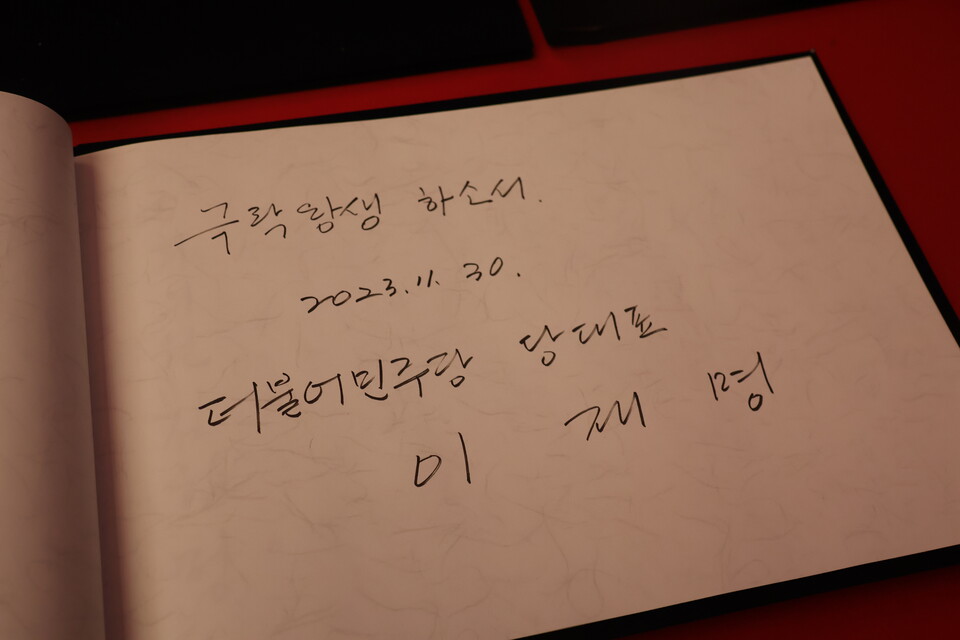 극락왕생 하소서.
2023.11.30.
더불어민주당 당대표
이 재 명